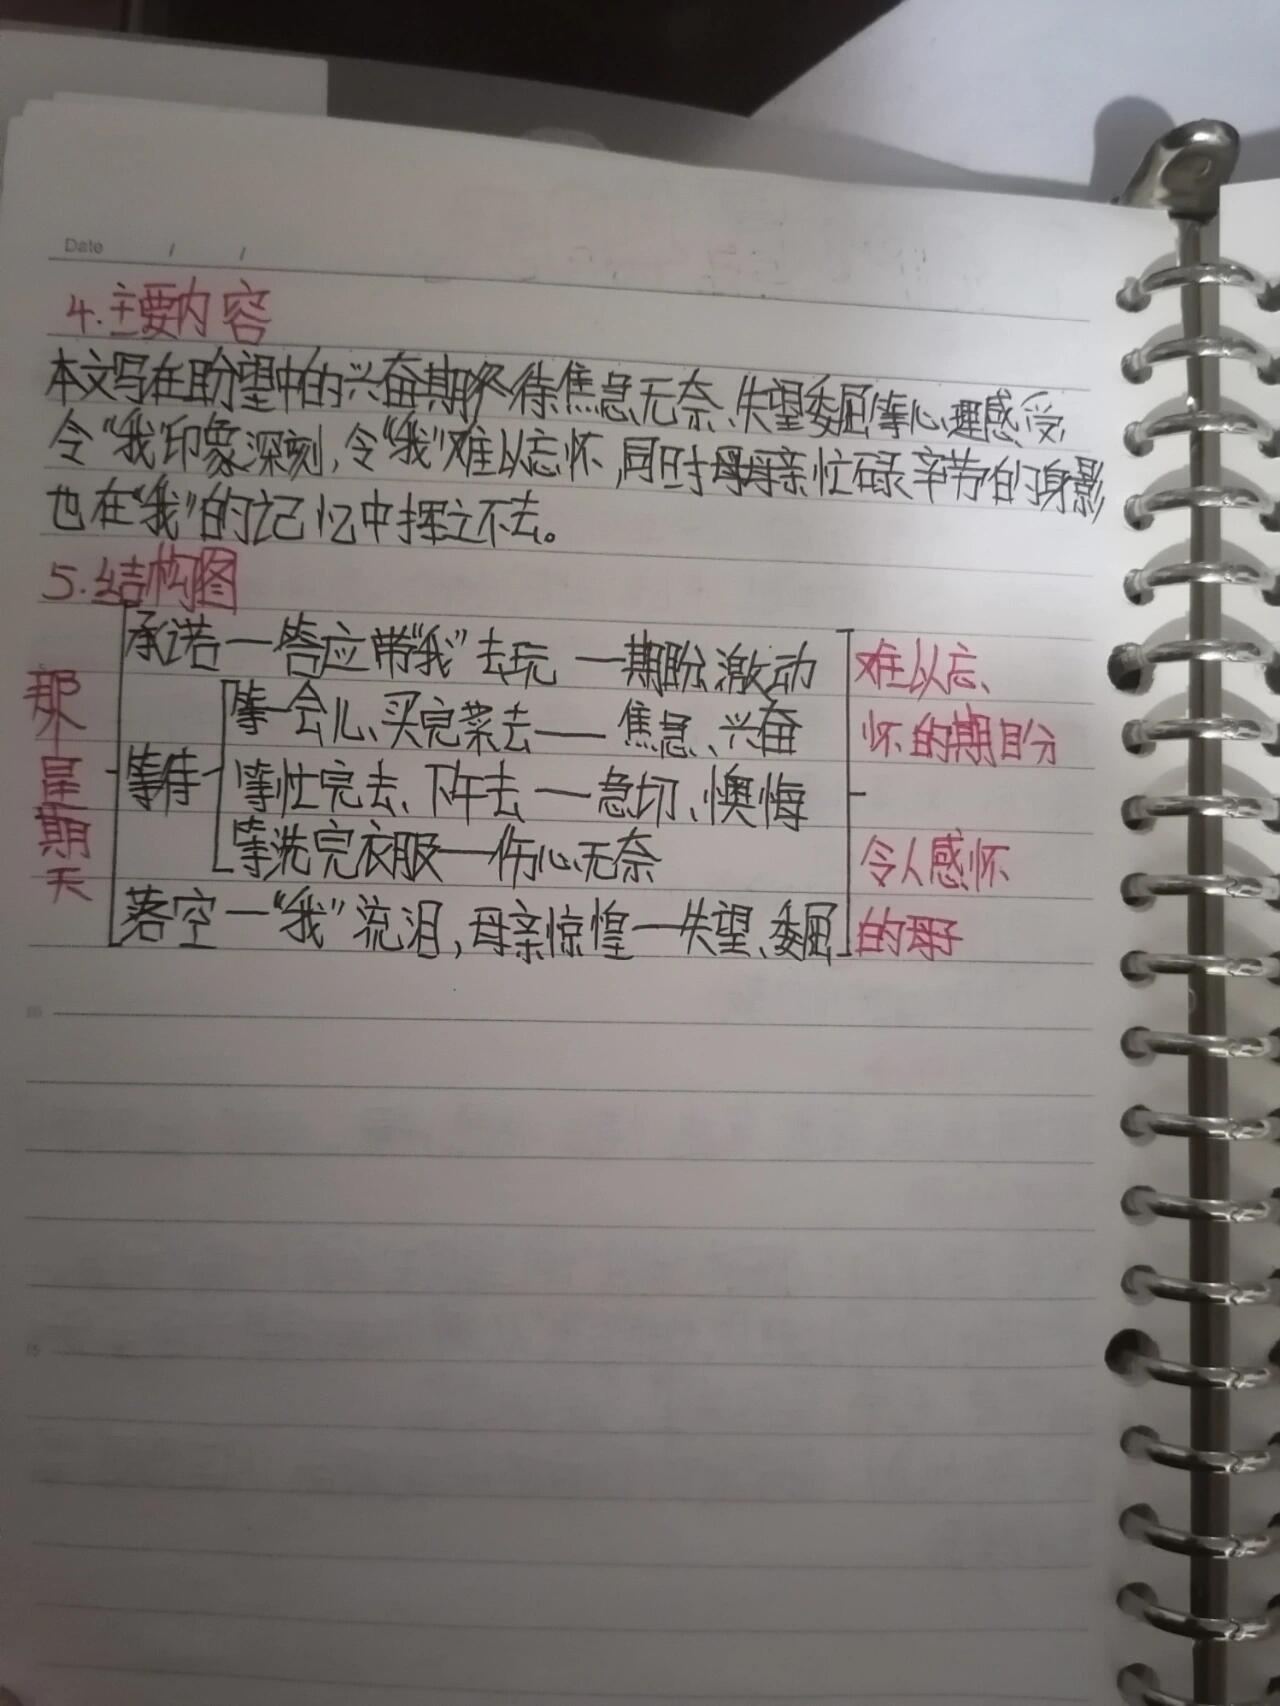 Date / /
4.主要内容
本文写在盼望中的兴奋期待焦急无奈、失望委屈等心理感受,
令“我”印象深刻,令“我”难以忘怀,同时母亲忙碌辛节的身影
也在“我”的记忆中挥之不去。
5.结构图
那个星期天
承诺—答应带“我”去玩 —期盼激动
等待
等一会儿、买完菜去——焦急、兴奋
等忙完去、下午去—急切、懊悔
等洗完衣服—伤心无奈
落空—“我”流泪,母亲惊惶—失望、委屈
难以忘、
怀的期盼
令人感怀
的母子
10
15